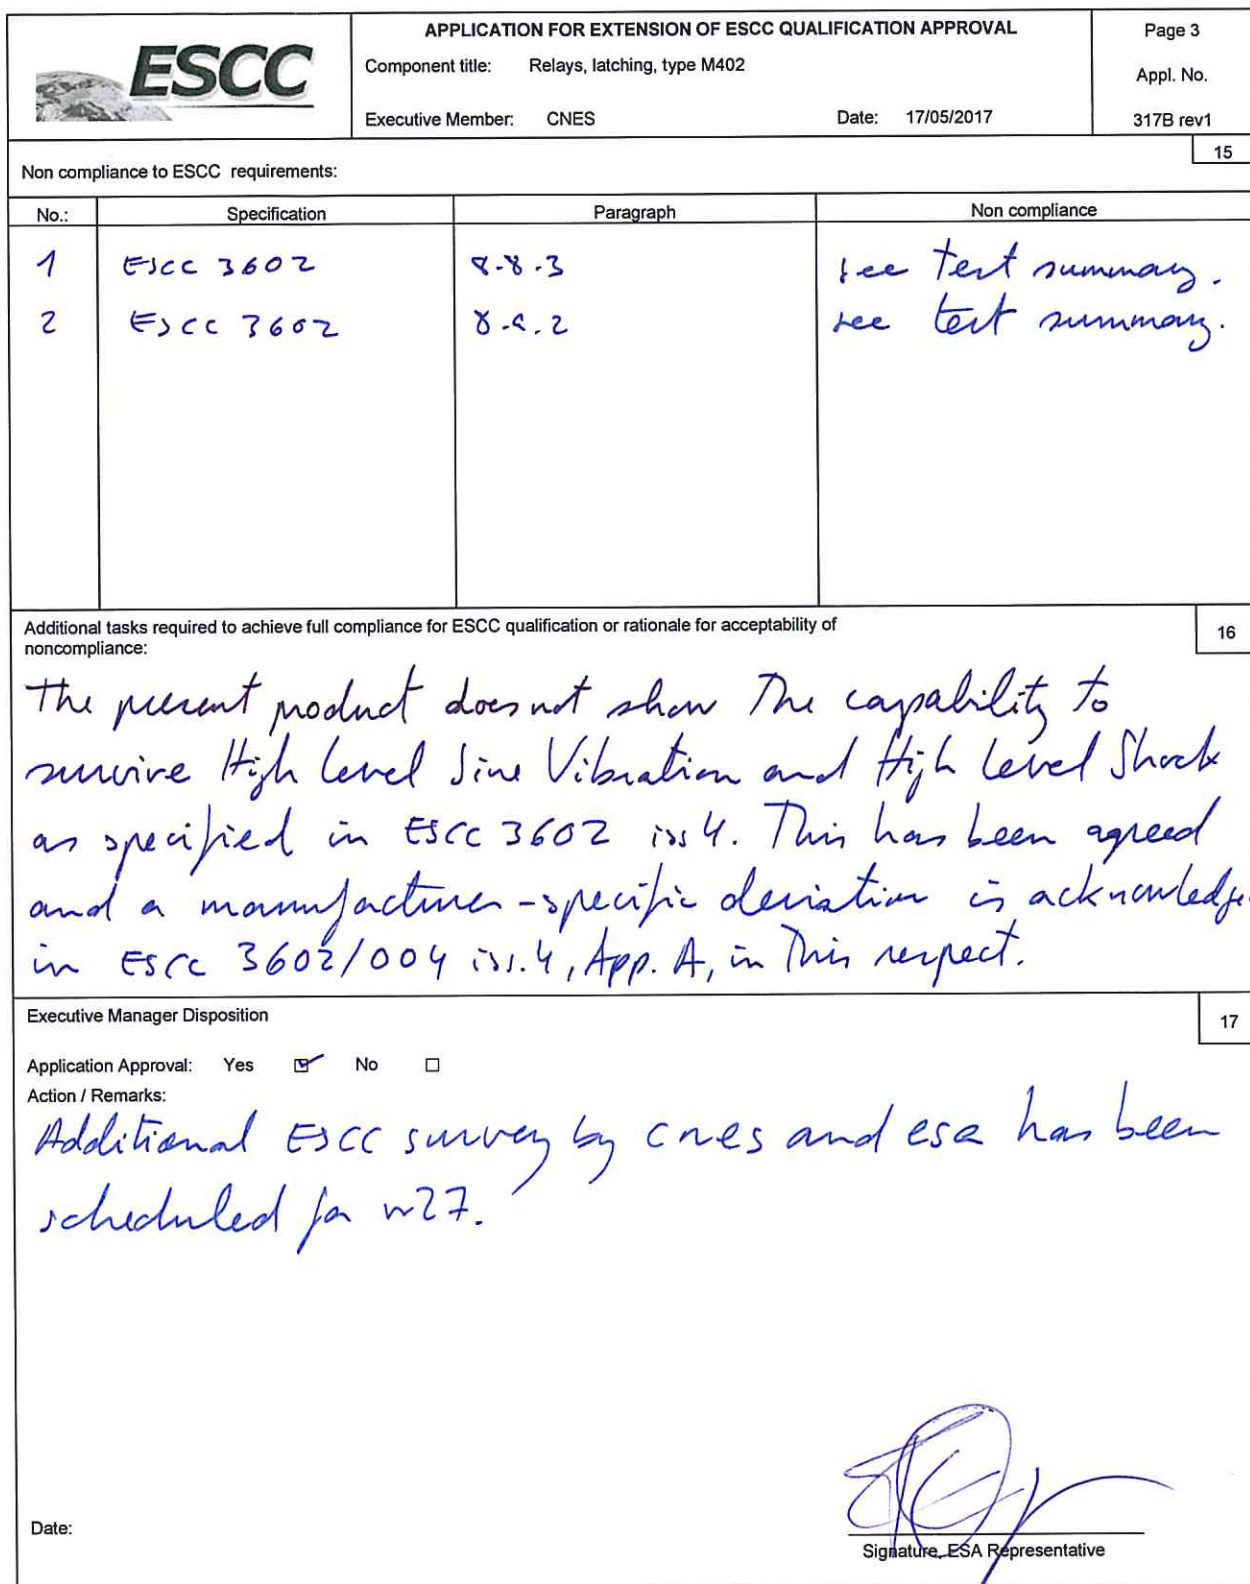 ESCC
APPLICATION FOR EXTENSION OF ESCC QUALIFICATION APPROVAL
Component title: Relays, latching, type M402
Executive Member: CNES Date: 17/05/2017
Page 3
Appl. No.
317B rev1
15
Non compliance to ESCC requirements:
No.: Specification Paragraph Non compliance
1 ESCC 3602 8.8.3 see test summary.
2 ESCC 3602 8.9.2 see test summary.
Additional tasks required to achieve full compliance for ESCC qualification or rationale for acceptability of
noncompliance:
16
The present product does not show the capability to
survive High Level Sine Vibration and High Level Shock
as specified in ESCC 3602 iss 4. This has been agreed
and a manufacturer-specific deviation is acknowledge
in ESCC 3602/004 iss.4, App. A, in this respect.
Executive Manager Disposition
17
Application Approval: Yes No
Action / Remarks:
Additional ESCC survey by cnes and esa has been
scheduled for w27.
Date:
Signature, ESA Representative